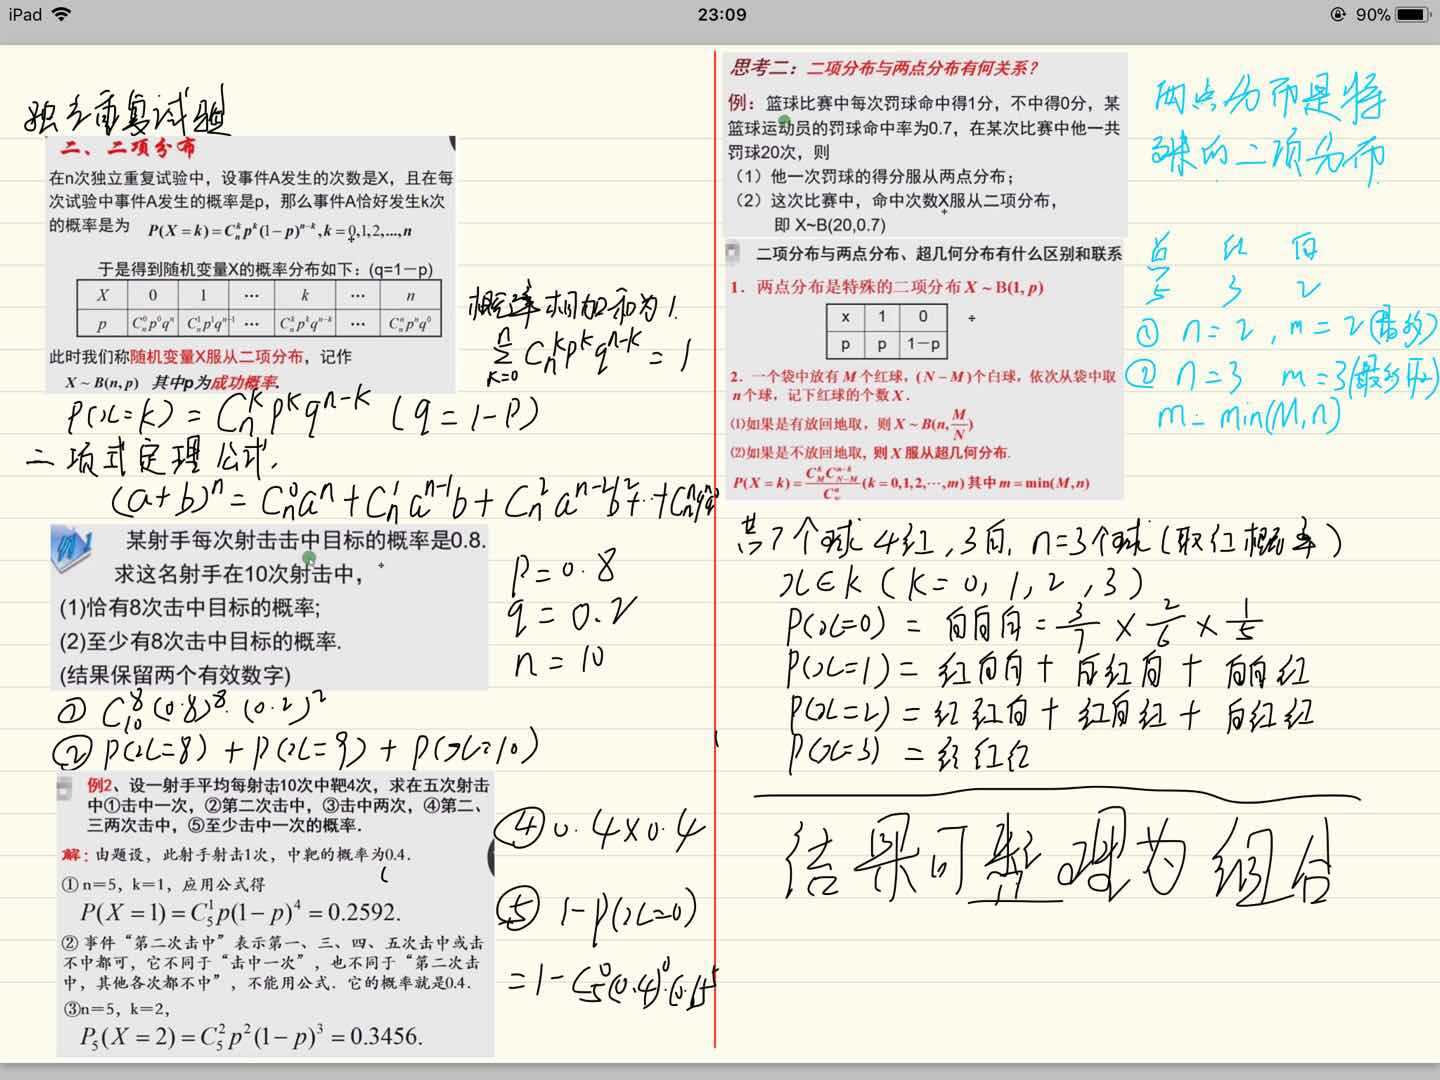 iPad
23:09
90%
独立重复试验
二、二项分布
在n次独立重复试验中，设事件A发生的次数是X，且在每
次试验中事件A发生的概率是p，那么事件A恰好发生k次
的概率是为 P(X = k) = C_n^k p^k (1 − p)^{n−k}, k = 0,1,2,...,n
于是得到随机变量X的概率分布如下：(q=1－p)
X 0 1 ··· k ··· n
p C_n^0 p^0 q^n C_n^1 p^1 q^{n−1} ··· C_n^k p^k q^{n−k} ··· C_n^n p^n q^0
此时我们称随机变量X服从二项分布，记作
X ~ B(n, p) 其中p为成功概率.
概率相加和为1.
\sum_{k=0}^{n} C_n^k p^k q^{n-k} = 1
P(x=k) = C_n^k p^k q^{n-k} (q = 1-P)
二项式定理公式.
(a+b)^n = C_n^0 a^n + C_n^1 a^{n-1} b + C_n^2 a^{n-2} b^2 + ··· +
例1 某射手每次射击击中目标的概率是0.8.
求这名射手在10次射击中，
(1)恰有8次击中目标的概率;
(2)至少有8次击中目标的概率.
(结果保留两个有效数字)
p = 0.8
q = 0.2
n = 10
① C_{10}^8 (0.8)^8 · (0.2)^2
② P(x=8) + P(x=9) + P(x=10)
例2、设一射手平均每射击10次中靶4次，求在五次射击
中①击中一次，②第二次击中，③击中两次，④第二、
三两次击中，⑤至少击中一次的概率．
解：由题设，此射手射击1次，中靶的概率为0.4．
① n＝5，k＝1，应用公式得
P(X = 1) = C_5^1 p(1 − p)^4 = 0.2592.
② 事件“第二次击中”表示第一、三、四、五次击中或击
不中都可，它不同于“击中一次”，也不同于“第二次击
中，其他各次都不中”，不能用公式．它的概率就是0.4．
③n＝5，k＝2，
P_5(X = 2) = C_5^2 p^2 (1 − p)^3 = 0.3456.
④ 0.4×0.4
⑤ 1-P(x=0)
= 1 - C_5^0 (0.4)^0 ·
思考二：二项分布与两点分布有何关系?
例：篮球比赛中每次罚球命中得1分，不中得0分，某
篮球运动员的罚球命中率为0.7，在某次比赛中他一共
罚球20次，则
（1）他一次罚球的得分服从两点分布；
（2）这次比赛中，命中次数X服从二项分布，
即 X~B(20,0.7)
两点分布是特
殊的二项分布
二项分布与两点分布、超几何分布有什么区别和联系
1．两点分布是特殊的二项分布 X ~ B(1, p)
x 1 0
p p 1－p
2．一个袋中放有 M 个红球，( N − M )个白球，依次从袋中取
n个球，记下红球的个数 X．
⑴如果是有放回地取，则 X ~ B(n, \frac{M}{N})
⑵如果是不放回地取，则 X 服从超几何分布.
P(X = k) = \frac{C_M^k C_{N−M}^{n−k}}{C_N^n} (k = 0,1,2,···,m) 其中 m = min(M, n)
总 红 白
5 3 2
① n = 2 , m = 2
② n = 3 m = 3
m = min(M,n)
共7个球 4红, 3白, n=3个球 (取红概率)
x∈k (k = 0, 1, 2, 3)
P(x=0) = 白白白 = 3/7 × 2/6 × 1/5
P(x=1) = 红白白 + 白红白 + 白白红
P(x=2) = 红红白 + 红白红 + 白红红
P(x=3) = 红红红
结果可整理为组合